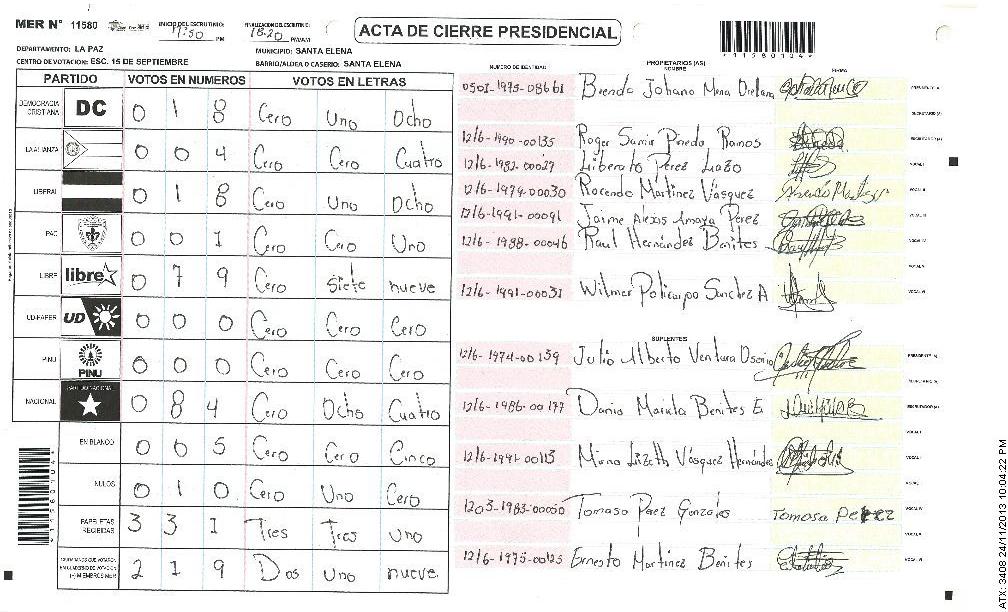 MER N° 11580
INICIO DEL ESCRUTINIO: 17:50 PM
FINALIZACION DEL ESCRUTINIO: 18:20 PM/AM
ACTA DE CIERRE PRESIDENCIAL
*11580104*
DEPARTAMENTO: LA PAZ
MUNICIPIO: SANTA ELENA
CENTRO DE VOTACION: ESC. 15 DE SEPTIEMBRE
BARRIO/ALDEA O CASERIO: SANTA ELENA
PARTIDO VOTOS EN NUMEROS VOTOS EN LETRAS
DEMOCRACIA CRISTIANA DC 0 1 8 Cero Uno Ocho
LA ALIANZA 0 0 4 Cero Cero Cuatro
LIBERAL 0 1 8 Cero Uno Ocho
PAC 0 0 1 Cero Cero Uno
LIBRE libre 0 7 9 Cero siete nueve
UD-FAPER UD 0 0 0 Cero Cero Cero
PINU PINU 0 0 0 Cero Cero Cero
NACIONAL PARTIDO NACIONAL 0 8 4 Cero Ocho Cuatro
EN BLANCO 0 0 5 Cero Cero Cinco
NULOS 0 1 0 Cero Uno Cero
PAPELETAS RECIBIDAS 3 3 1 Tres Tres uno
CIUDADANOS QUE VOTARON EN CUADERNO DE VOTACION (+) MIEMBROS MER 2 1 9 Dos uno nueve
NUMERO DE IDENTIDAD PROPIETARIOS (AS) NOMBRE FIRMA
0501-1975-08661 Brenda Johana Mena Orellana PRESIDENTE (A)
SECRETARIO (A)
1216-1990-00135 Roger Samir Pineda Ramos ESCRUTADOR (A)
1216-1982-00029 Liberato Perez Lazo VOCAL I
1216-1974-00030 Rocendo Martinez Vásquez VOCAL II
1216-1991-00091 Jaime Alexis Amaya Perez VOCAL III
1216-1988-00046 Raul Hernández Benites VOCAL IV
VOCAL V
1216-1991-00031 Wilmer Policarpo Sanchez A VOCAL VI
SUPLENTES
1216-1974-00139 Julio Alberto Ventura Osorio PRESIDENTE (A)
SECRETARIO (A)
1216-1986-00177 Dania Mariela Benites E. ESCRUTADOR (A)
VOCAL I
1216-1991-00113 Mirna Lizeth Vásquez Hernández VOCAL II
VOCAL III
1203-1983-00050 Tomasa Perez Gonzales Tomosa Perez VOCAL IV
VOCAL V
1216-1975-00125 Ernesto Martinez Benites VOCAL VI
*11580104*
ATX: 3408 24/11/2013 10:04:22 PM